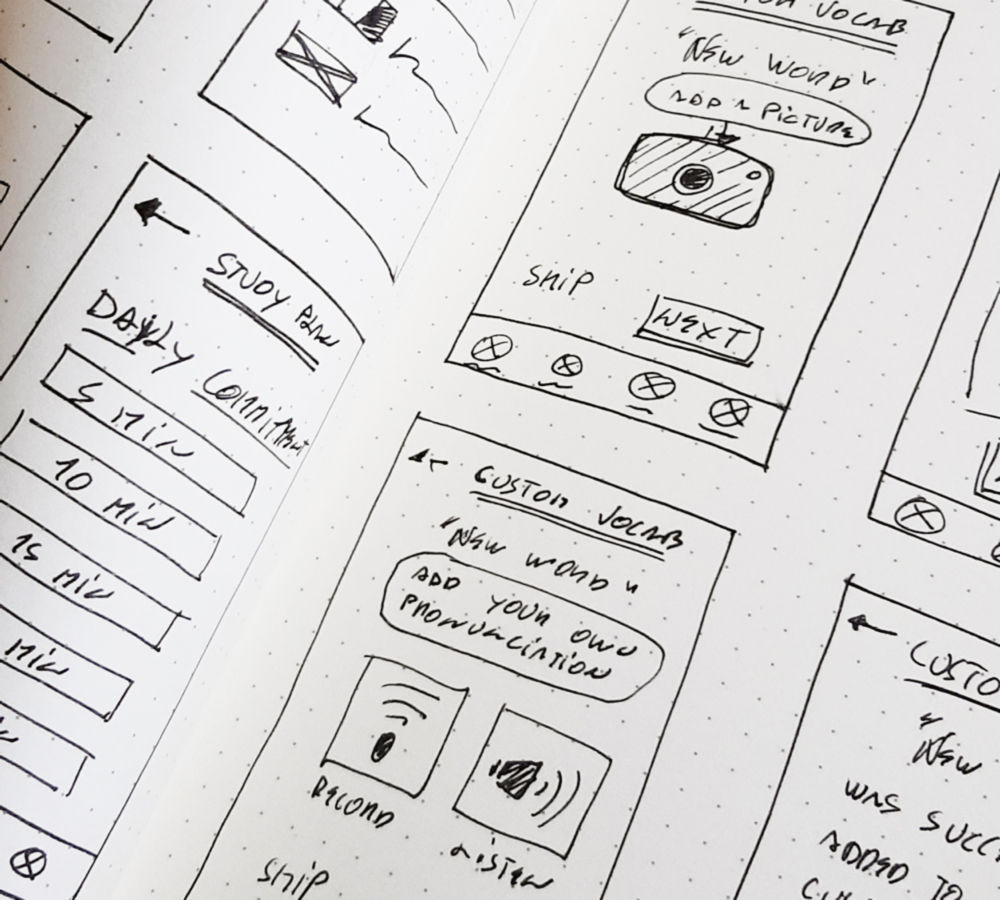 STUDY PLAN
DAILY COMMITMENT
5 MIN
10 MIN
15 MIN
MIN
VOCAB
"NEW WORD"
ADD A PICTURE
SKIP
NEXT
CUSTOM VOCAB
"NEW WORD"
ADD YOUR OWN
PRONUNCIATION
RECORD
LISTEN
SKIP
CUSTO
"NEW
WAS SUCC
ADDED TO